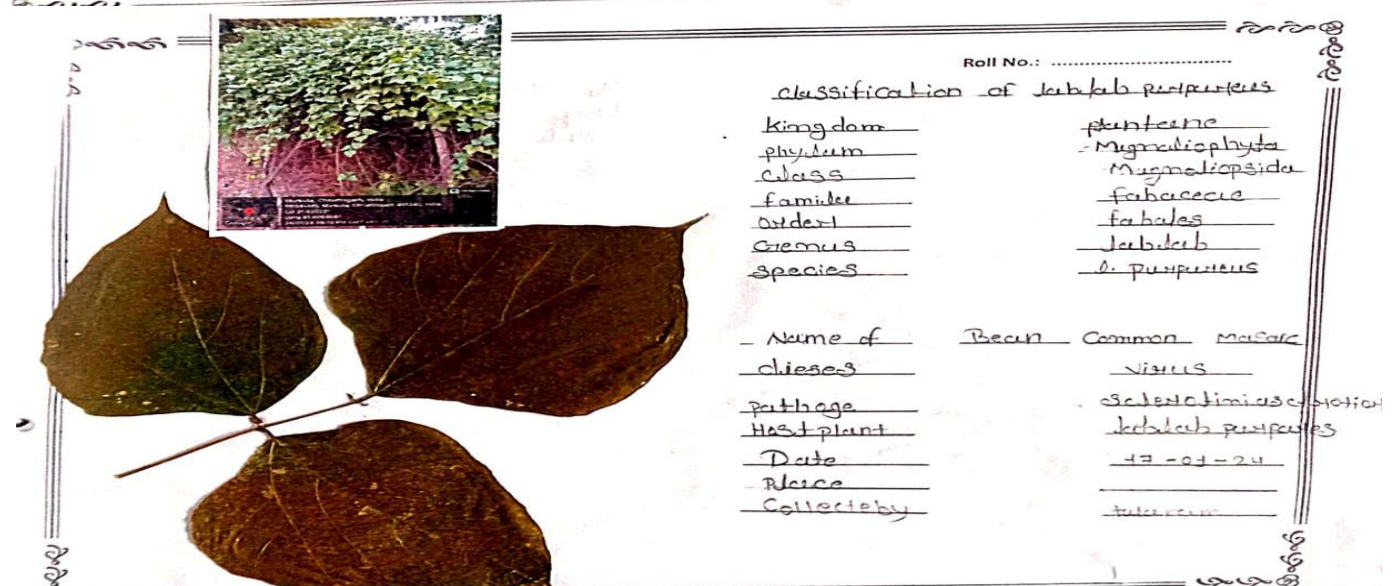 Roll No.: ................................
classification of lablab purpureus
Kingdom plantene
phylum Mugnoliophyta
Class Mugnoliopsida
familee fabaceae
order fabales
Genus lablab
species l. purpureus
Name of Bean Common Masaic
dieses virus
pathoge
Host plant lablab purpures
Date 17-01-24
Place
Collecteby